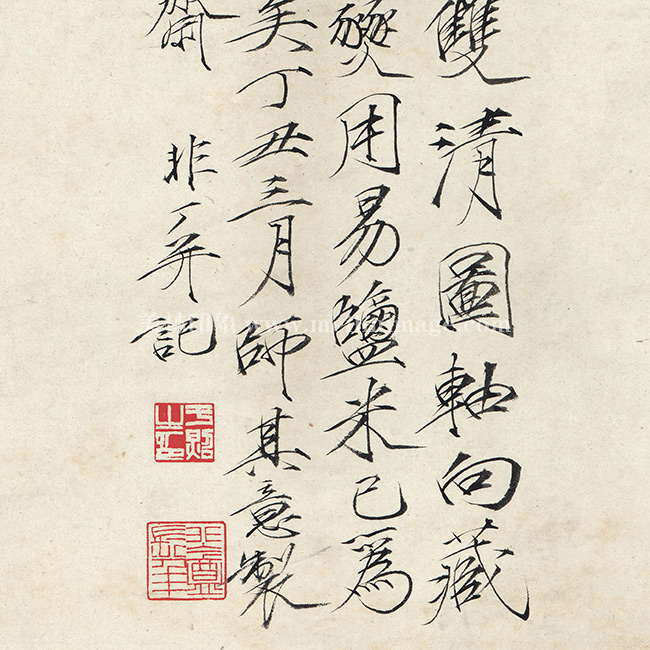 雙清圖軸向藏
燹用易鹽米已為
矣丁丑三月師其意製
齋 非厂并記